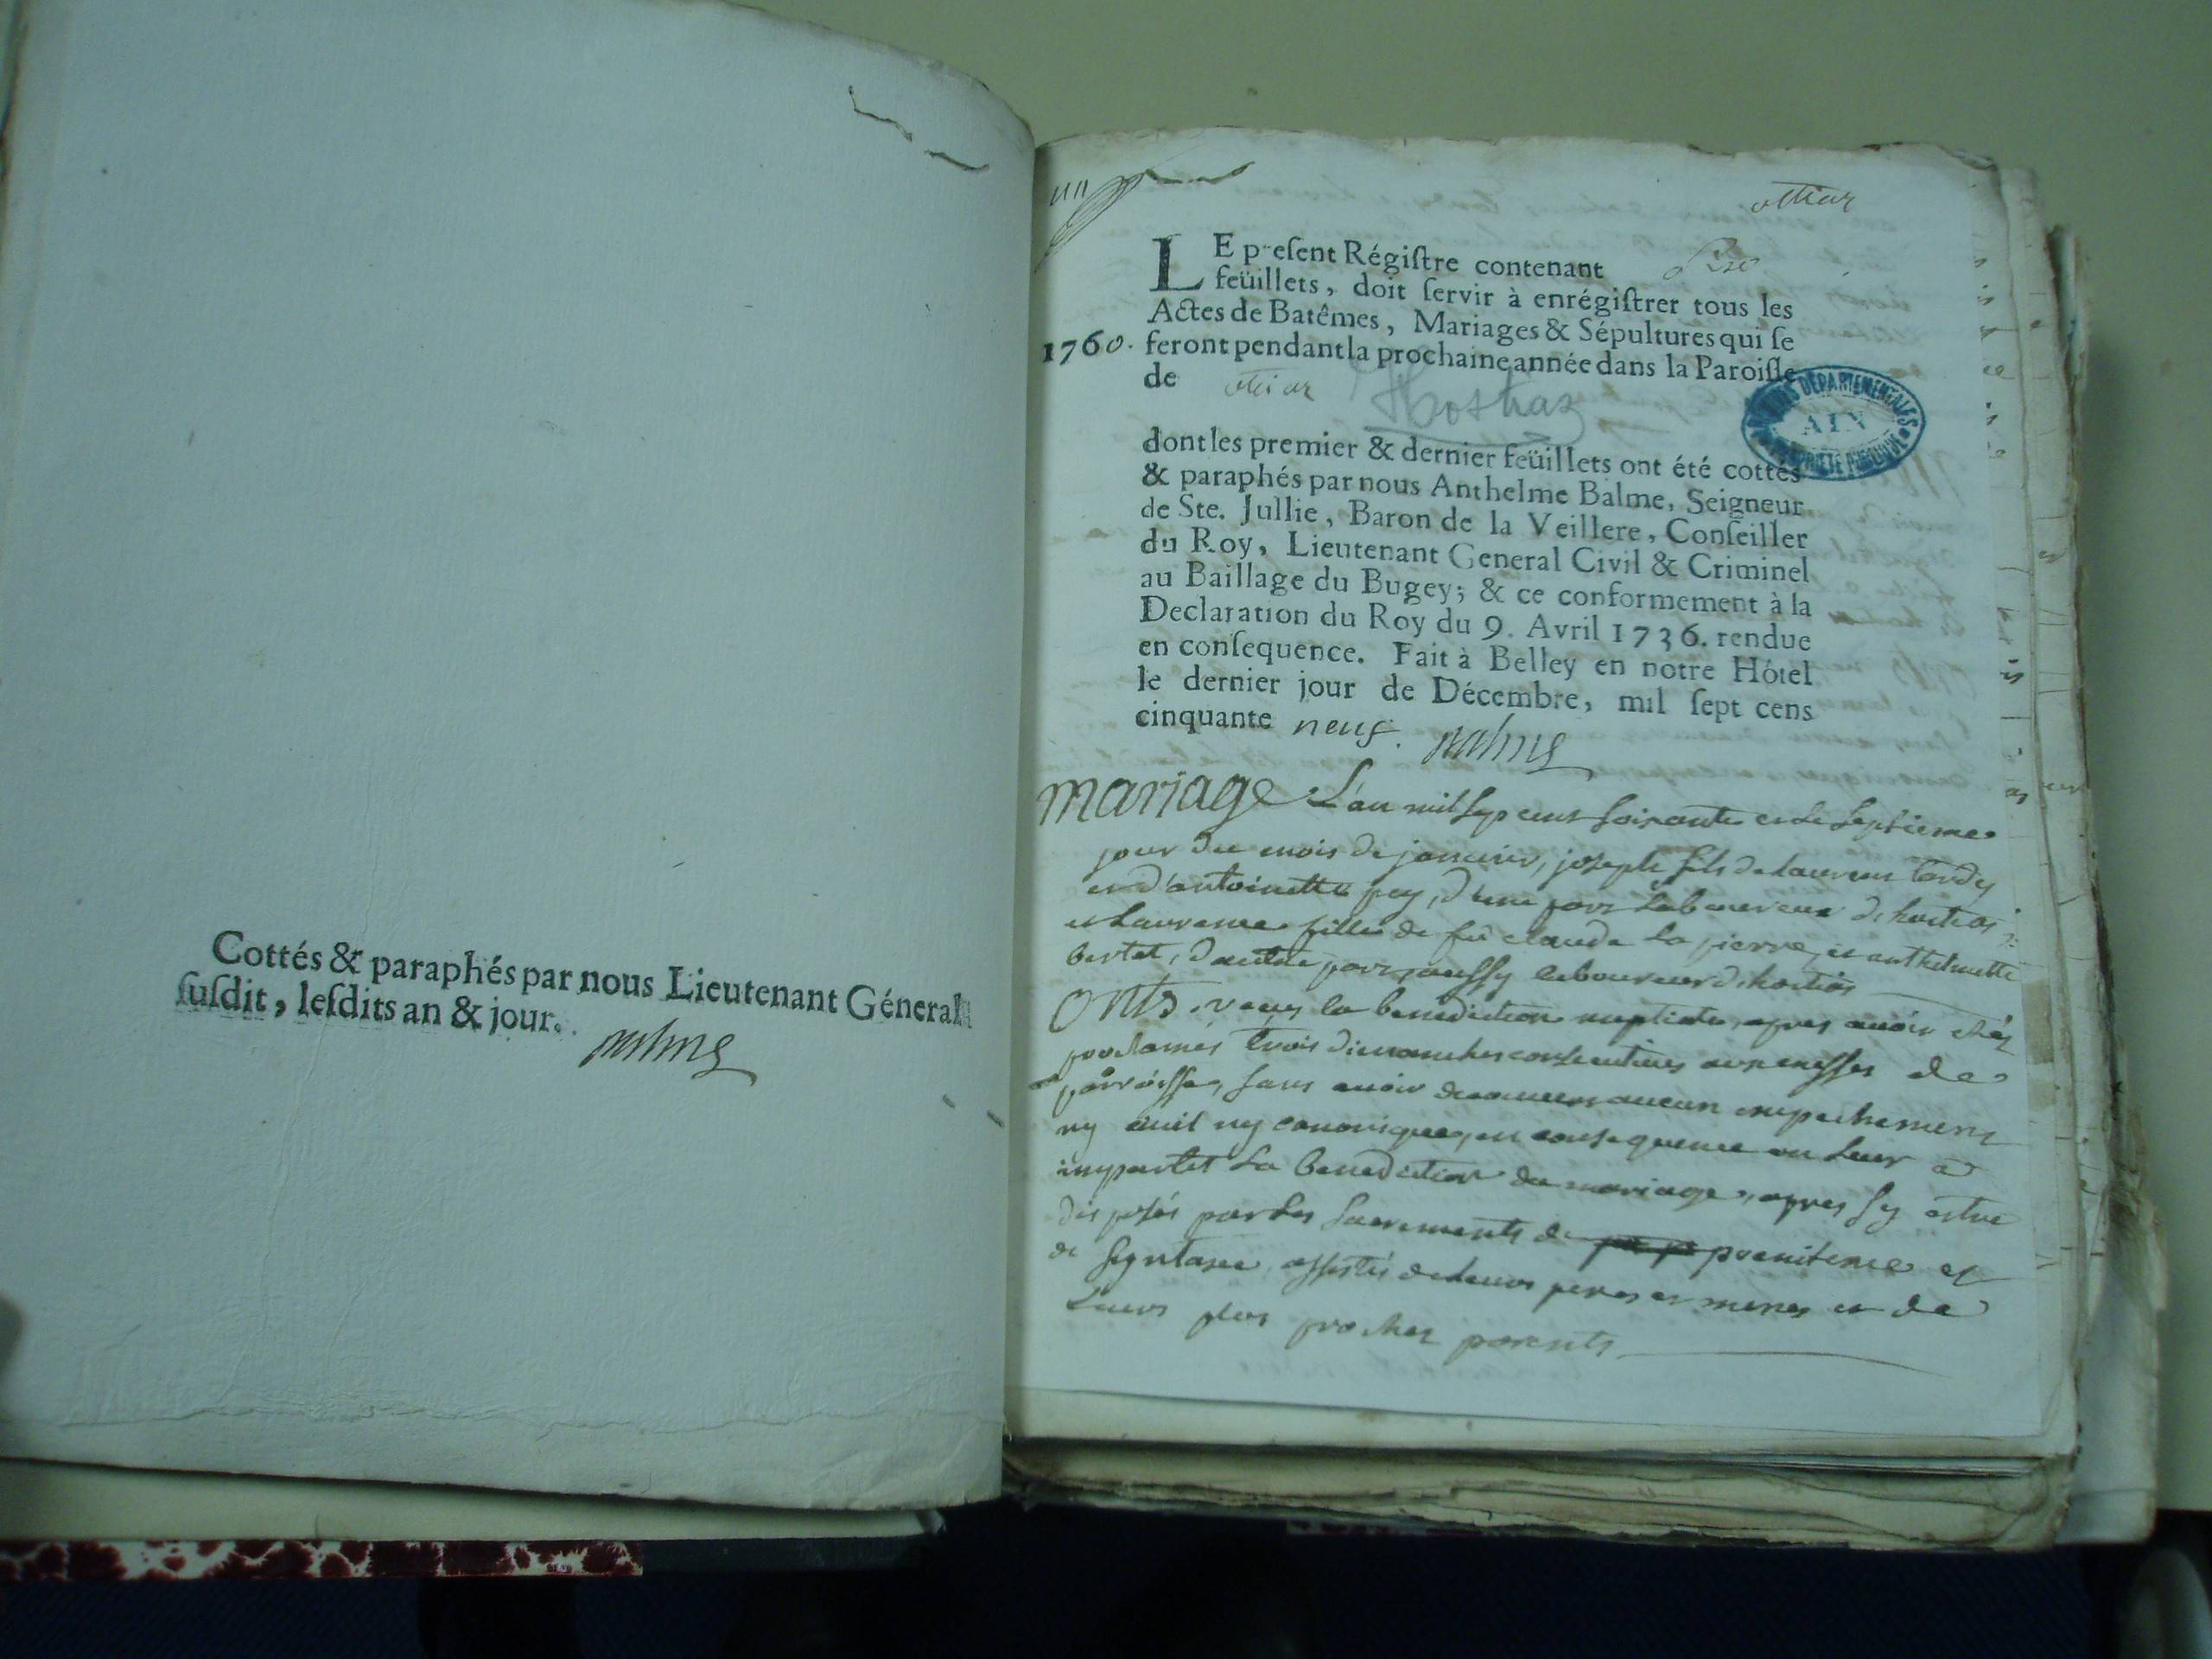 Cottés & paraphés par nous Lieutenant Géneral
ſuſdit, leſdits an & jour.
Balme
ottiar
LE preſent Régiſtre contenant
feüillets, doit ſervir à enrégiſtrer tous les
Actes de Batêmes, Mariages & Sépultures qui ſe
1760. feront pendant la prochaine année dans la Paroiſſe
de ottiar Hostiaz
ARCHIVES DÉPARTEMENTALES
AIN
PROPRIÉTÉ PUBLIQUE
dont les premier & dernier feüillets ont été cottés
& paraphés par nous Anthelme Balme, Seigneur
de Ste. Jullie, Baron de la Veillere, Conſeiller
du Roy, Lieutenant General Civil & Criminel
au Baillage du Bugey; & ce conformement à la
Declaration du Roy du 9. Avril 1736. rendue
en conſequence. Fait à Belley en notre Hôtel
le dernier jour de Décembre, mil ſept cens
cinquante neuf. Balme
mariage L'an mil sept cent soixante et le septieme
jour du mois de janvier, joseph fils de Laurent tardy
et d'antoinette pey, d'une part Laboureur d'hostias
et Laurence fille de fû claude La pierre, et anthelmette
bertet, d'autre part, aussy laboureur d'hostias
Onts. receus la benediction nuptiale, apres avoir étés
proclamés trois dimanches consecutives aux messes de
parroisse, sans avoir decouvert aucun empechement
ny civil ny canonique, en consequence on Leur a
impartit La benediction du mariage, apres sy estre
disposés par Les sacrements de poenitence et
de Leurs peres et meres et de
Leurs plus proches parents